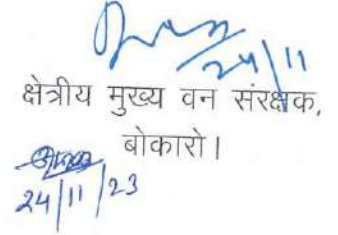 24/11
क्षेत्रीय मुख्य वन संरक्षक,
बोकारो।
24/11/23